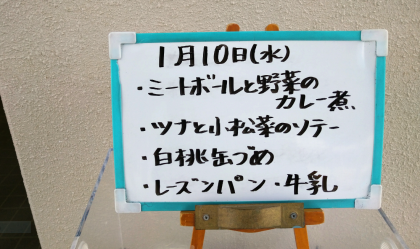 1月10日(水)
・ミートボールと野菜の
カレー煮
・ツナと小松菜のソテー
・白桃缶づめ
・レーズンパン・牛乳